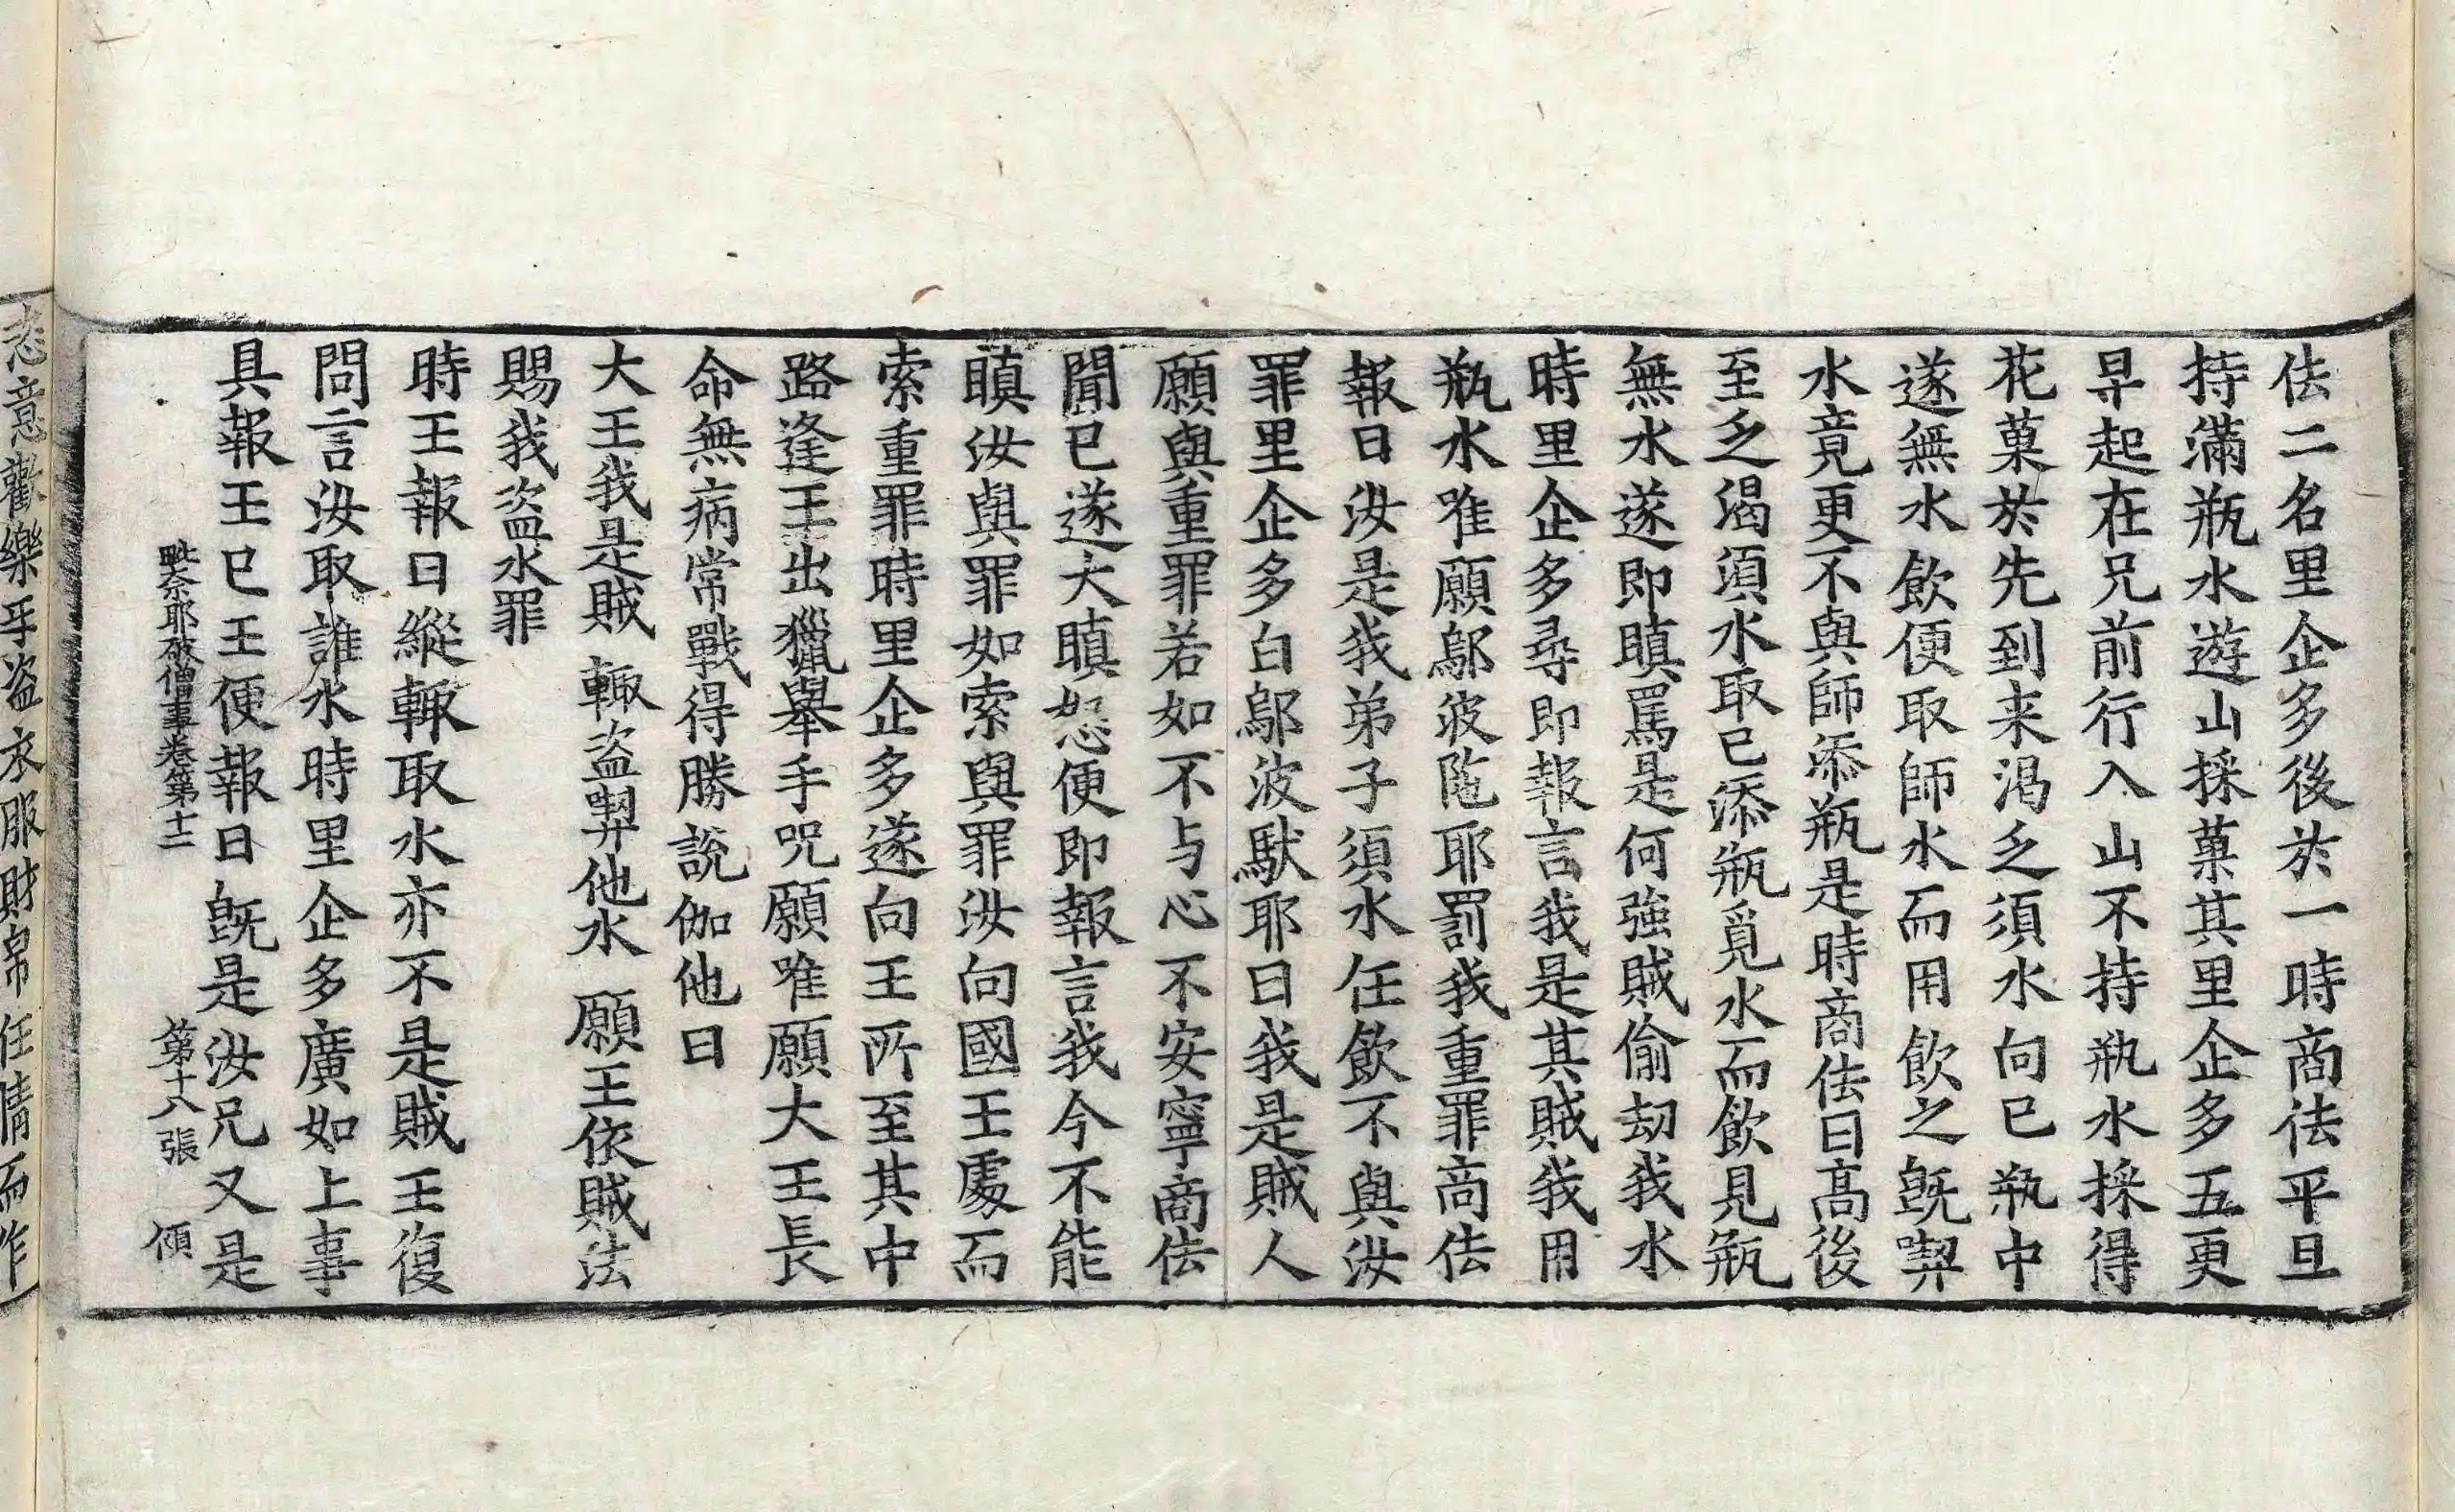 佉二名里企多後於一時商佉平旦
持滿瓶水遊山採菓其里企多五更
早起在兄前行入山不持瓶水採得
花菓於先到来渴乏須水向已瓶中
遂無水飲便取師水而用飲之旣㓗
水竟更不與師添瓶是時商佉曰髙後
至乏渴須水取已添瓶覓水而飲見瓶
無水遂即瞋罵是何強賊偷劫我水
時里企多尋即報言我是其賊我用
瓶水唯願鄔波陁耶罰我重罪商佉
報曰汝是我弟子須水任飲不與汝
罪里企多白鄔波馱耶曰我是賊人
願與重罪若如不与心不安寧商佉
聞已遂大瞋怒便即報言我今不能
瞋汝與罪如索與罪汝向國王處而
索重罪時里企多遂向王所至其中
路逢王出獵舉手咒願唯願大王長
命無病常戰得勝說伽他曰
大王我是賊 輙盜㗉他水 願王依賊法
賜我盜水罪
時王報曰縱輙取水亦不是賊王復
問言汝取誰水時里企多廣如上事
具報王已王便報曰旣是汝兄又是
毗奈耶破僧事卷第十二 第十八張 傾
恣意歡樂手盜衣服財帛任情而作